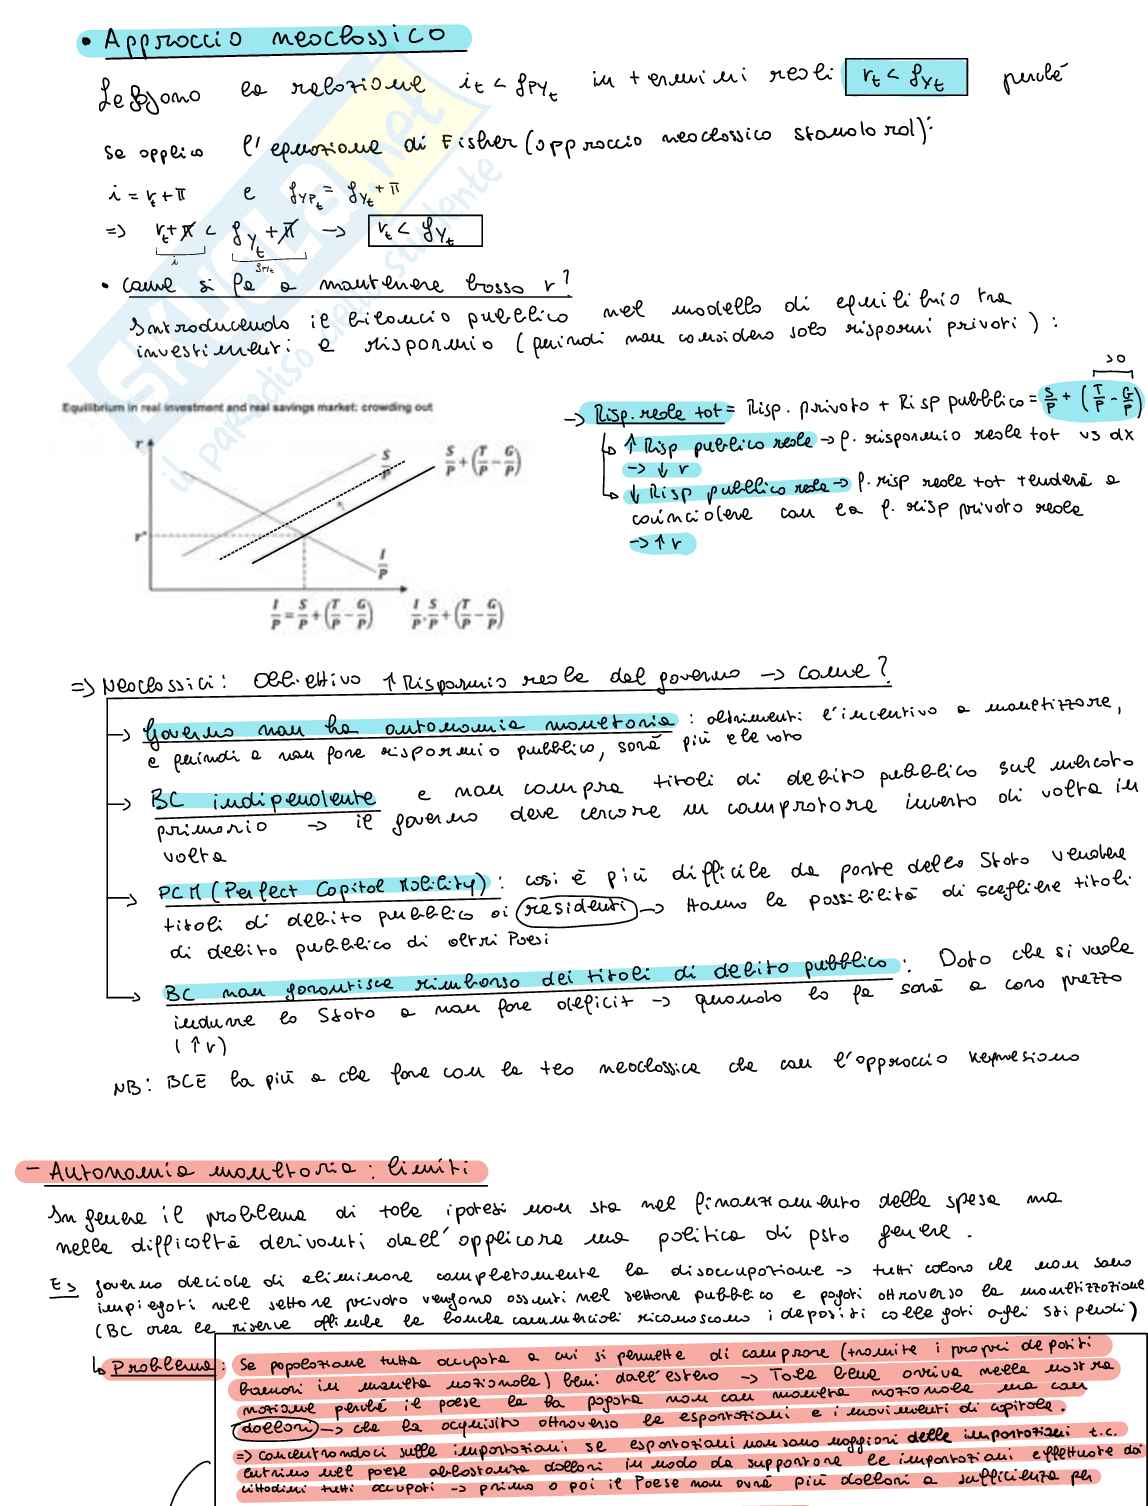 • Approccio neoclassico
Leggono la relazione it < gPYt in termini reali rt < gYt perché
se applico l'equazione di Fisher (approccio neoclassico standard):
i = rt + π e gYPt = gYt + π
=> rt + π < gYt + π → rt < gYt
i gPYt
• Come si fa a mantenere basso r?
Introducendo il bilancio pubblico nel modello di equilibrio tra
investimenti e risparmio (quindi non considero solo risparmi privati):
Equilibrium in real investment and real savings market: crowding out
r
S/P
S/P + (T/P - G/P)
r*
I/P
I/P = S/P + (T/P - G/P) I/P, S/P + (T/P - G/P)
>0
→ Risp. reale tot = Risp. privato + Risp pubblico = S/P + (T/P - G/P)
↑ Risp pubblico reale → f. risparmio reale tot vs dx
→ ↓ r
↓ Risp pubblico reale → f. risp reale tot tenderà a
coincidere con la f. risp privato reale
→ ↑ r
=> Neoclassici: Obiettivo ↑ Risparmio reale del governo → come?
→ Governo non ha autonomia monetaria: altrimenti l'incentivo a monetizzare,
e quindi a non fare risparmio pubblico, sarà più elevato
→ BC indipendente e non compra titoli di debito pubblico sul mercato
primario → il governo deve cercare un compratore incerto di volta in
volta
→ PCM (Perfect Capital Mobility): così è più difficile da parte dello Stato vendere
titoli di debito pubblico ai residenti → Hanno la possibilità di scegliere titoli
di debito pubblico di altri Paesi
→ BC non garantisce rimborso dei titoli di debito pubblico: Dato che si vuole
indurre lo Stato a non fare deficit → quando lo fa sarà a caro prezzo
(↑r)
NB: BCE ha più a che fare con la teo neoclassica che con l'approccio keynesiano
- Autonomia monetaria: limiti
In genere il problema di tale ipotesi non sta nel finanziamento della spesa ma
nelle difficoltà derivanti dall'applicare una politica di psto genere.
Es governo decide di eliminare completamente la disoccupazione → tutti coloro che non sono
impiegati nel settore privato vengono assunti nel settore pubblico e pagati attraverso la monetizzazione
(BC crea le riserve affinché le banche commerciali riconoscano i depositi collegati agli stipendi)
↳ Problema: Se popolazione tutta occupata a cui si permette di comprare (tramite i propri depositi
bancari in moneta nazionale) beni dall'estero → Tale bene arriva nella nostra
nazione perché il paese lo ha pagato non con moneta nazionale ma con
dollari → che ha acquisito attraverso le esportazioni e i movimenti di capitale.
=> Concentrandoci sulle importazioni se esportazioni non sono maggiori delle importazioni t.c.
entrino nel paese abbastanza dollari in modo da supportare le importazioni effettuate dai
cittadini tutti occupati → prima o poi il Paese non avrà più dollari a sufficienza per
SKUOLA.net
il paradiso dello studente